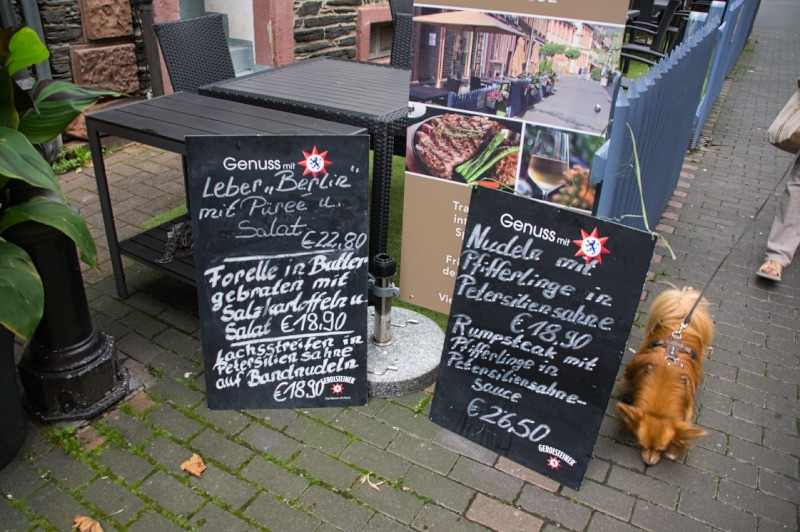 Genuss mit
Leber „Berlin"
mit Püree u.
Salat
€22,80
Forelle in Butter
gebraten mit
Salzkartoffeln u
Salat €18,90
Lachsstreifen in
Petersiliensahne
auf Bandnudeln
€18,90
GEROLSTEINER
Genuss mit
Nudeln mit
Pfifferlinge in
Petersiliensahne
€18,90
Rumpsteak mit
Pfifferlinge in
Petersiliensahne-
sauce
€26,50
GEROLSTEINER